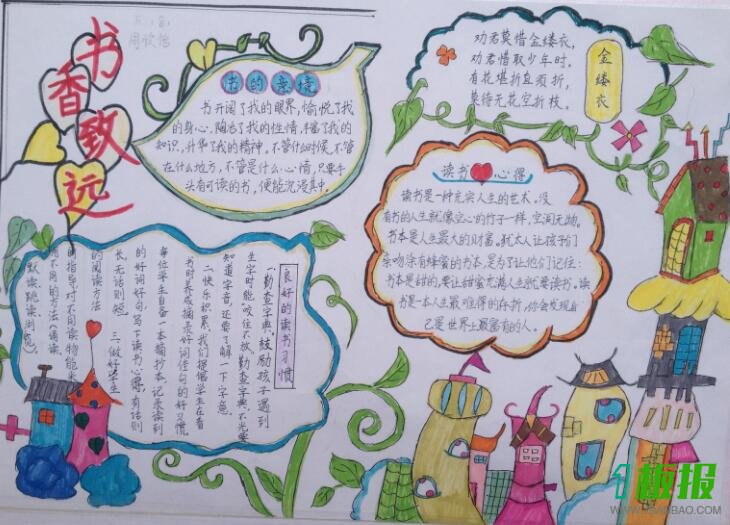 书香致远
书的意境
书开阔了我的眼界，愉悦了我
的身心，陶冶了我的性情，丰富了我的
知识，升华了我的精神，不管什么时候，不管
在什么地方，不管是什么心情，只要手
头有可读的书，便能沉浸其中。
金缕衣
劝君莫惜金缕衣，
劝君惜取少年时，
有花堪折直须折，
莫待无花空折枝。
读书心得
读书是一种充实人生的艺术。没
有书的人生就像空心的竹子一样，空洞无物。
书本是人生最大的财富。犹太人让孩子们
亲吻涂有蜂蜜的书本，是为了让他们记住：
书本是甜的，要让甜蜜充满人生就要读书。读
书是一本人生最难得的存折，你会发现自
己是世界上最富有的人。
良好的读书习惯
一勤查字典。鼓励孩子遇到
生字时能"咬住不放"勤查字典，不光要
知道字音，还要了解一下字意。
二快乐积累。我们提倡学生在看
书时养成摘录好词佳句的好习惯
每位学生自备一本摘抄本，记录读到
的好词好句，写下读书心得，有话则
长，无话则短。三、做好学生
的阅读方法
的指导，对不同读物能采
用不同的方法（诵读、
默读、跳读、浏览）。
板报
WWW.1BANBAO.COM